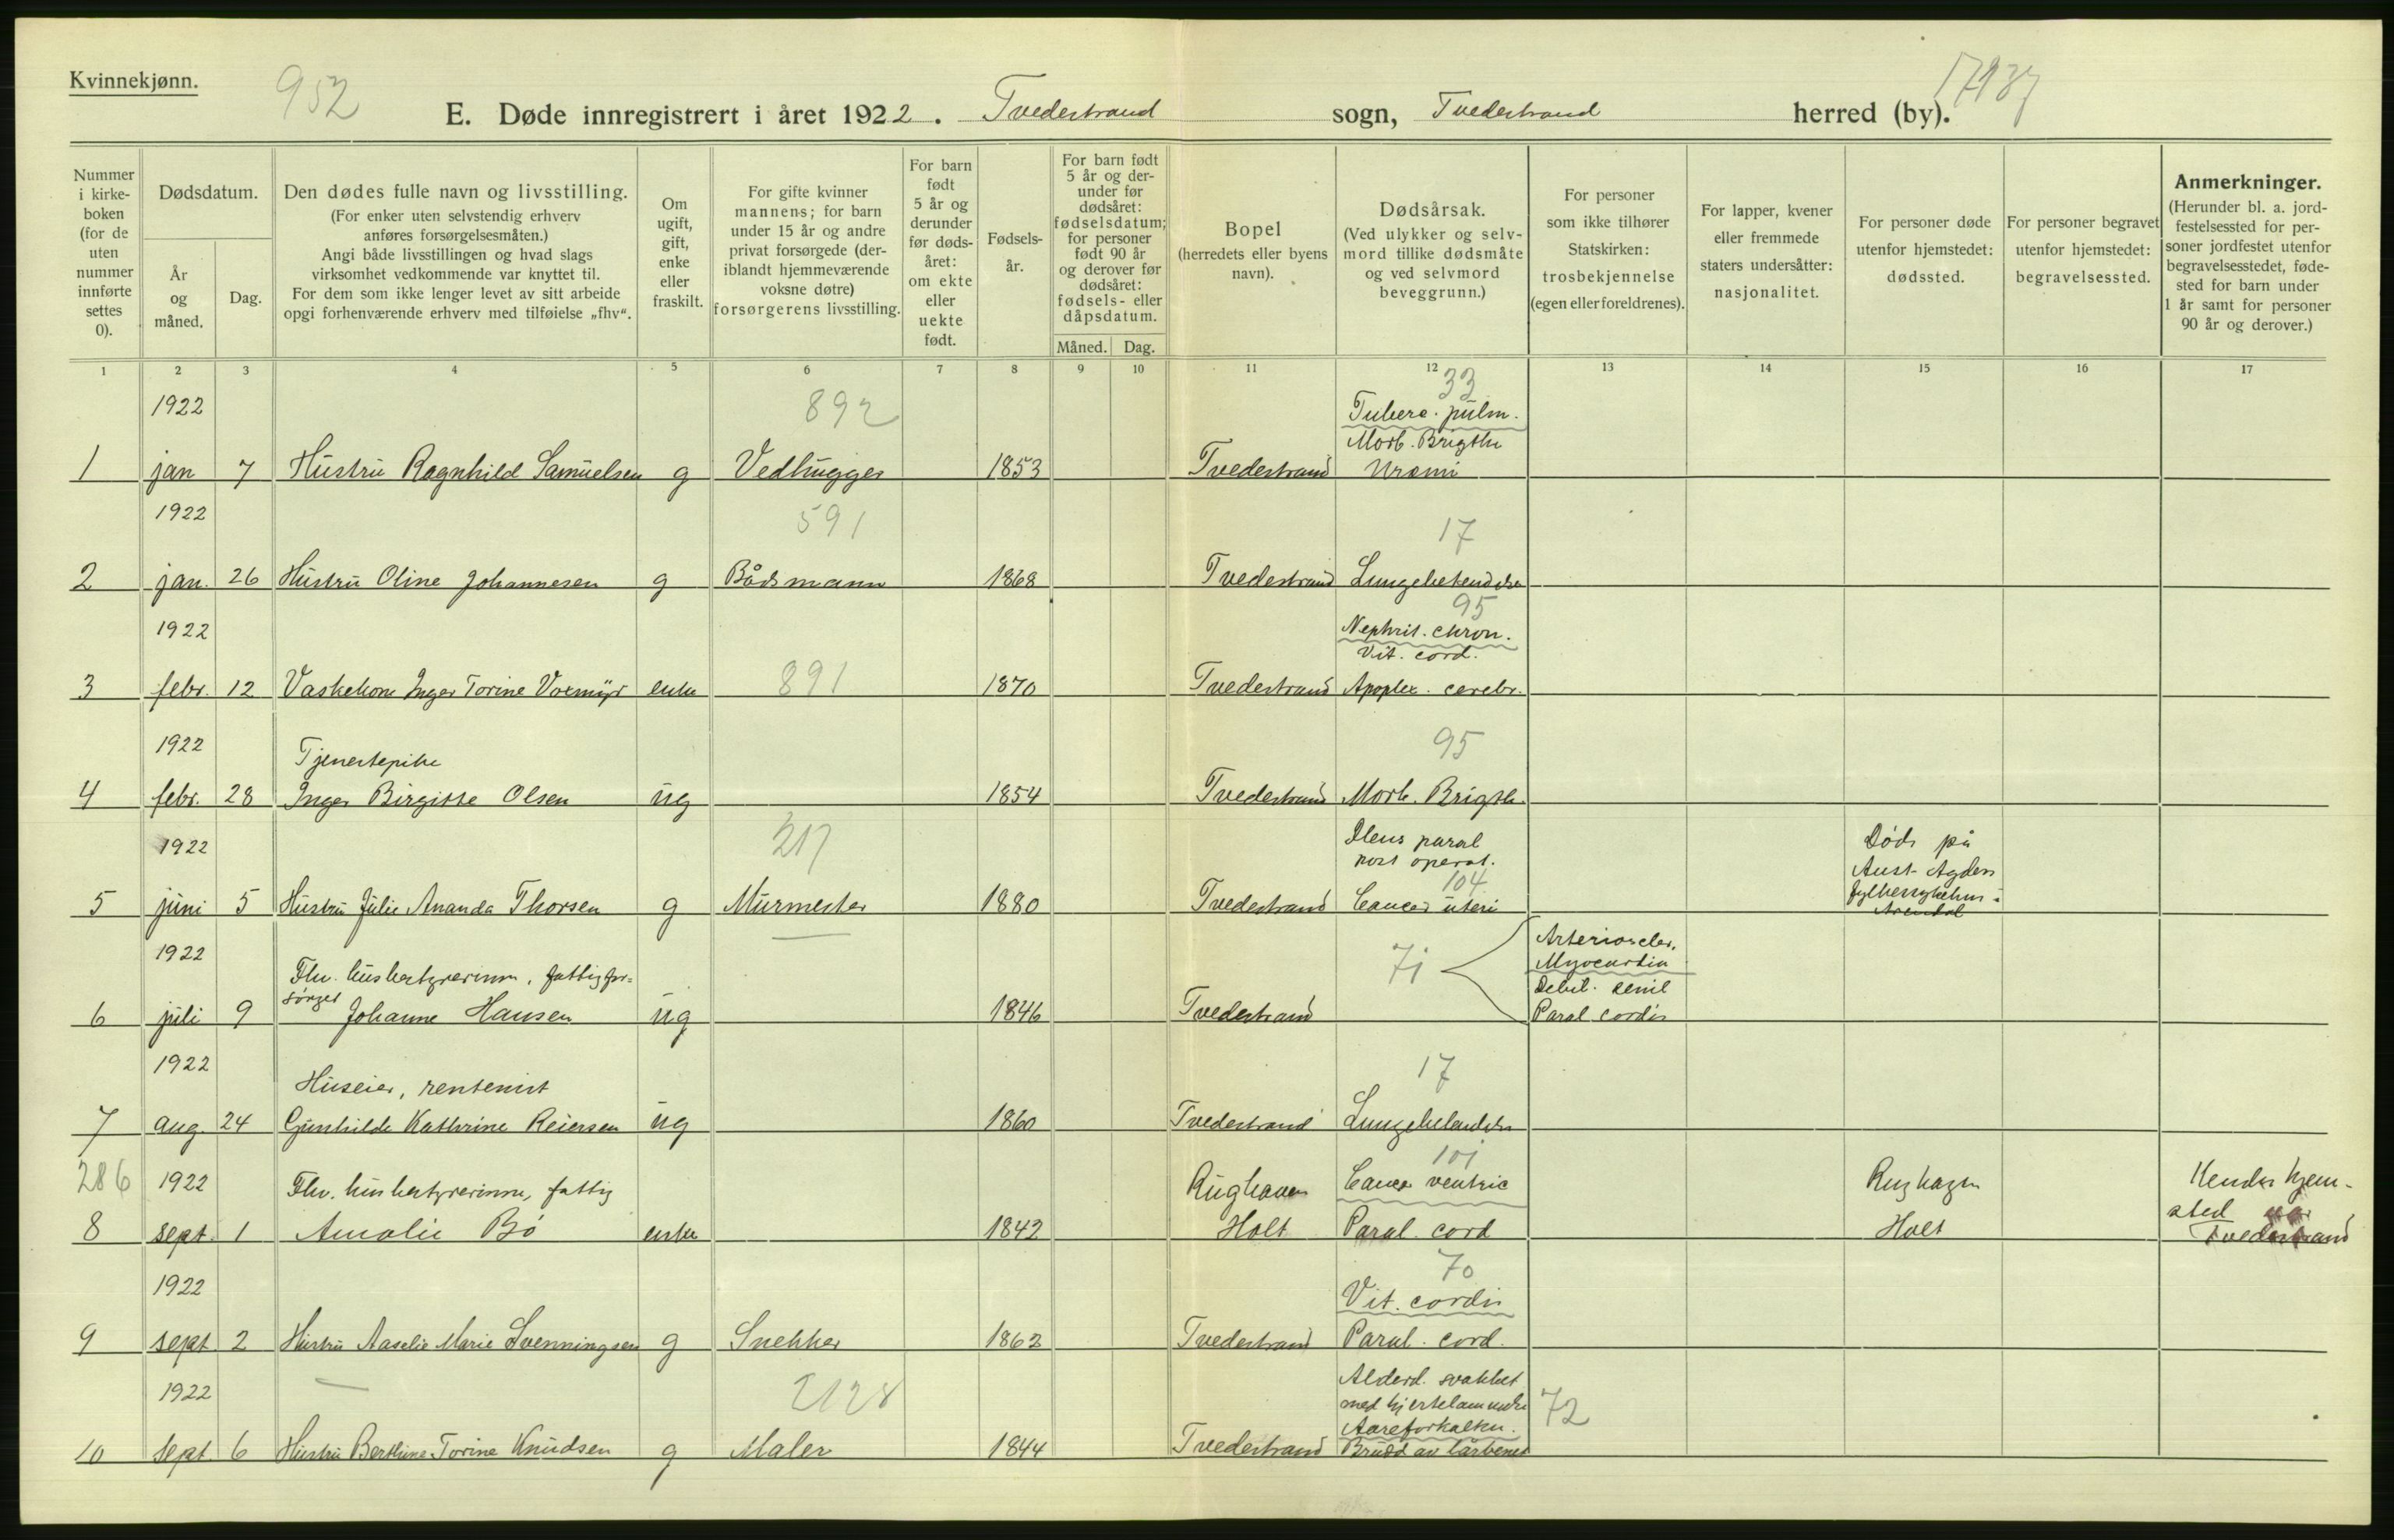 Kvinnekjønn.
952
17937
E. Døde innregistrert i året 1922. Tvedestrand sogn, Tvedestrand herred (by).
Nummer i kirkeboken (for de uten nummer innførte settes 0).
Dødsdatum.
År og måned.
Dag.
Den dødes fulle navn og livsstilling.
(For enker uten selvstendig erhverv anføres forsørgelsesmåten.)
Angi både livsstillingen og hvad slags virksomhet vedkommende var knyttet til.
For dem som ikke lenger levet av sitt arbeide opgi forhenværende erhverv med tilføielse „fhv“.
Om ugift, gift, enke eller fraskilt.
For gifte kvinner mannens; for barn under 15 år og andre privat forsørgede (deriblandt hjemmeværende voksne døtre) forsørgerens livsstilling.
For barn født 5 år og derunder før dødsåret: om ekte eller uekte født.
Fødselsår.
For barn født 5 år og derunder før dødsåret: fødselsdatum; for personer født 90 år og derover før dødsåret: fødsels- eller dåpsdatum.
Måned. Dag.
Bopel (herredets eller byens navn).
Dødsårsak.
(Ved ulykker og selvmord tillike dødsmåte og ved selvmord beveggrunn.)
For personer som ikke tilhører Statskirken: trosbekjennelse (egen eller foreldrenes).
For lapper, kvener eller fremmede staters undersåtter: nasjonalitet.
For personer døde utenfor hjemstedet: dødssted.
For personer begravet utenfor hjemstedet: begravelsessted.
Anmerkninger.
(Herunder bl. a. jordfestelsessted for personer jordfestet utenfor begravelsesstedet, fødested for barn under 1 år samt for personer 90 år og derover.)
1 2 3 4 5 6 7 8 9 10 11 12 13 14 15 16 17
1922 892 33
Tuberc. pulm.
Morb. Brigthi
1 jan 7 Hustru Ragnhild Samuelsen g Vedhugger 1853 Tvedestrand Uræmi
1922 591 17
2 jan. 26 Hustru Oline Johannesen g Bådsmann 1868 Tvedestrand Lungebetendelse
95
1922 Nephrit. chron.
Vit. cord.
3 febr. 12 Vaskekone Inger Torine Voxmyr enke 891 1870 Tvedestrand Apoplex. cerebr.
1922 Tjenestepike 95
4 febr. 28 Inger Birgitte Olsen ug 1854 Tvedestrand Morb. Brigth.
1922 317 Ileus paral Død på
post operat. Aust-Agder
104 fylkessykehus i
5 juni 5 Hustru Julie Ananda Thorsen g Murmester 1880 Tvedestrand Cancer uteri Arendal
1922 Arterioscler.
Fhv. husbestyrerinne, fattigfor= 71 Myocardia
sørget Debil. senil
6 juli 9 Johanne Hansen ug 1846 Tvedestrand Paral cordis
1922 Huseier, rentenist 17
7 aug. 24 Gunhilde Kathrine Reiersen ug 1860 Tvedestrand Lungebetendelse
101
286 1922 Fhv. husbestyrerinne, fattig Rughaven Cancer ventric Rughagen Hendes hjem-
sted var
8 sept. 1 Amalie Bø enke 1842 Holt Paral. cord Holt Tvedestrand
1922 70
Vit. cordis
9 sept. 2 Hustru Aaselie Marie Svenningsen g Snekker 1862 Tvedestrand Paral. cord.
1922 2128 Alderd. svakhet
med hjertelammelse 72
Aareforkalkn.
10 sept. 6 Hustru Berthine Torine Knudsen g Maler 1844 Tvedestrand Brudd av lårbenet